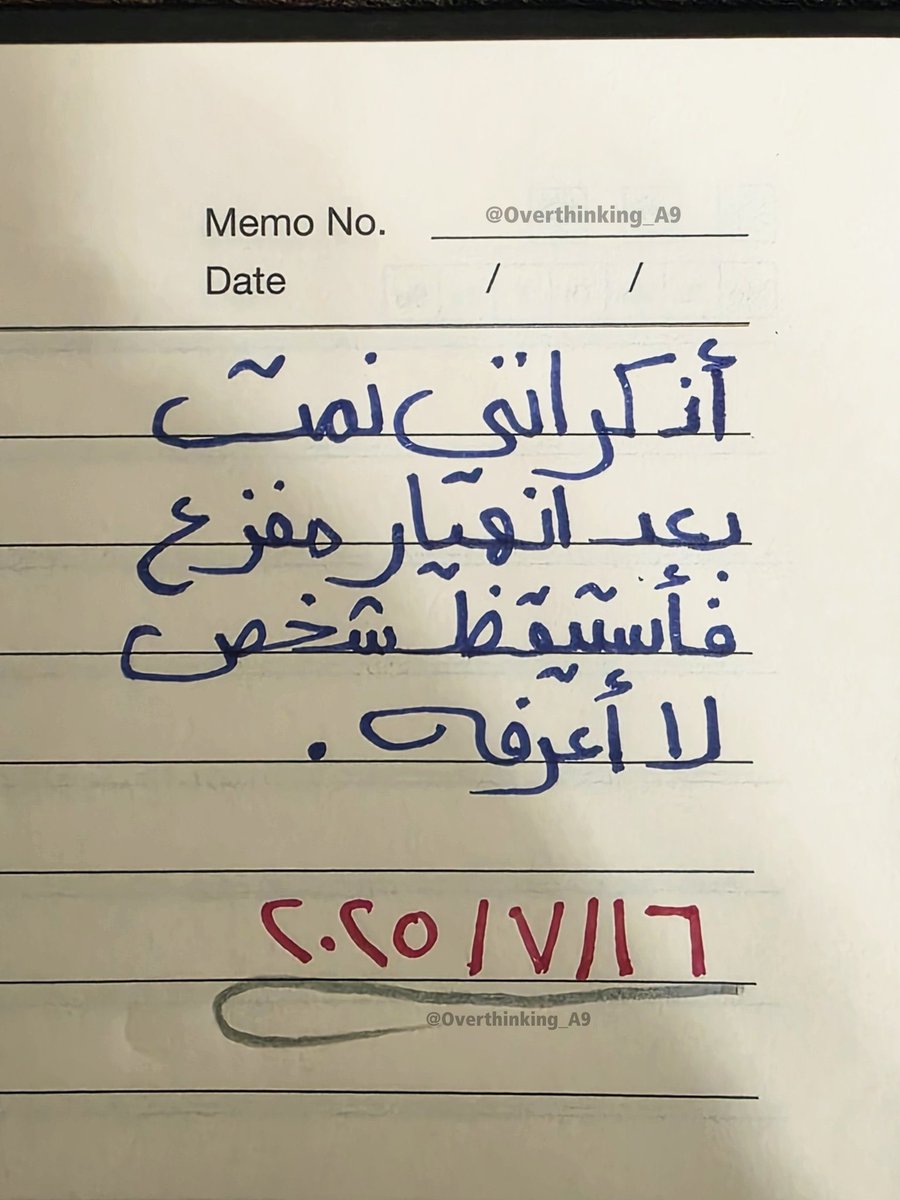 Memo No. @Overthinking_A9
Date / /
أذكر انني نمت
بعد انهيار مفزع
فأستيقظ شخص
لا أعرفه .
٢٠٢٥/٧/١٦
@Overthinking_A9